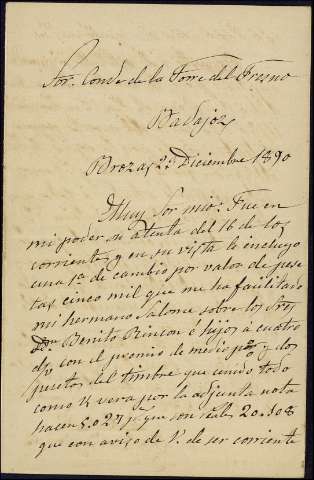 Sor. Conde de la Torre del Fresno
Badajoz
Brozas 23 Diciembre 1890
Muy Sor mio: Fue en
mi poder su atenta del 16 de los
corrientes y en su vista le incluyo
una 1ª de cambio por valor de pese
tas cinco mil que me ha facilitado
mi hermano sobre los Sres
Benito Rincon é hijos a cuatro
d/v con el premio de medio p% y dos
pesetas del timbre que unido todo
como V. vera por la adjunta nota
hacen 5.027 ptas que son reales 20.108
que con aviso de V. de ser corriente